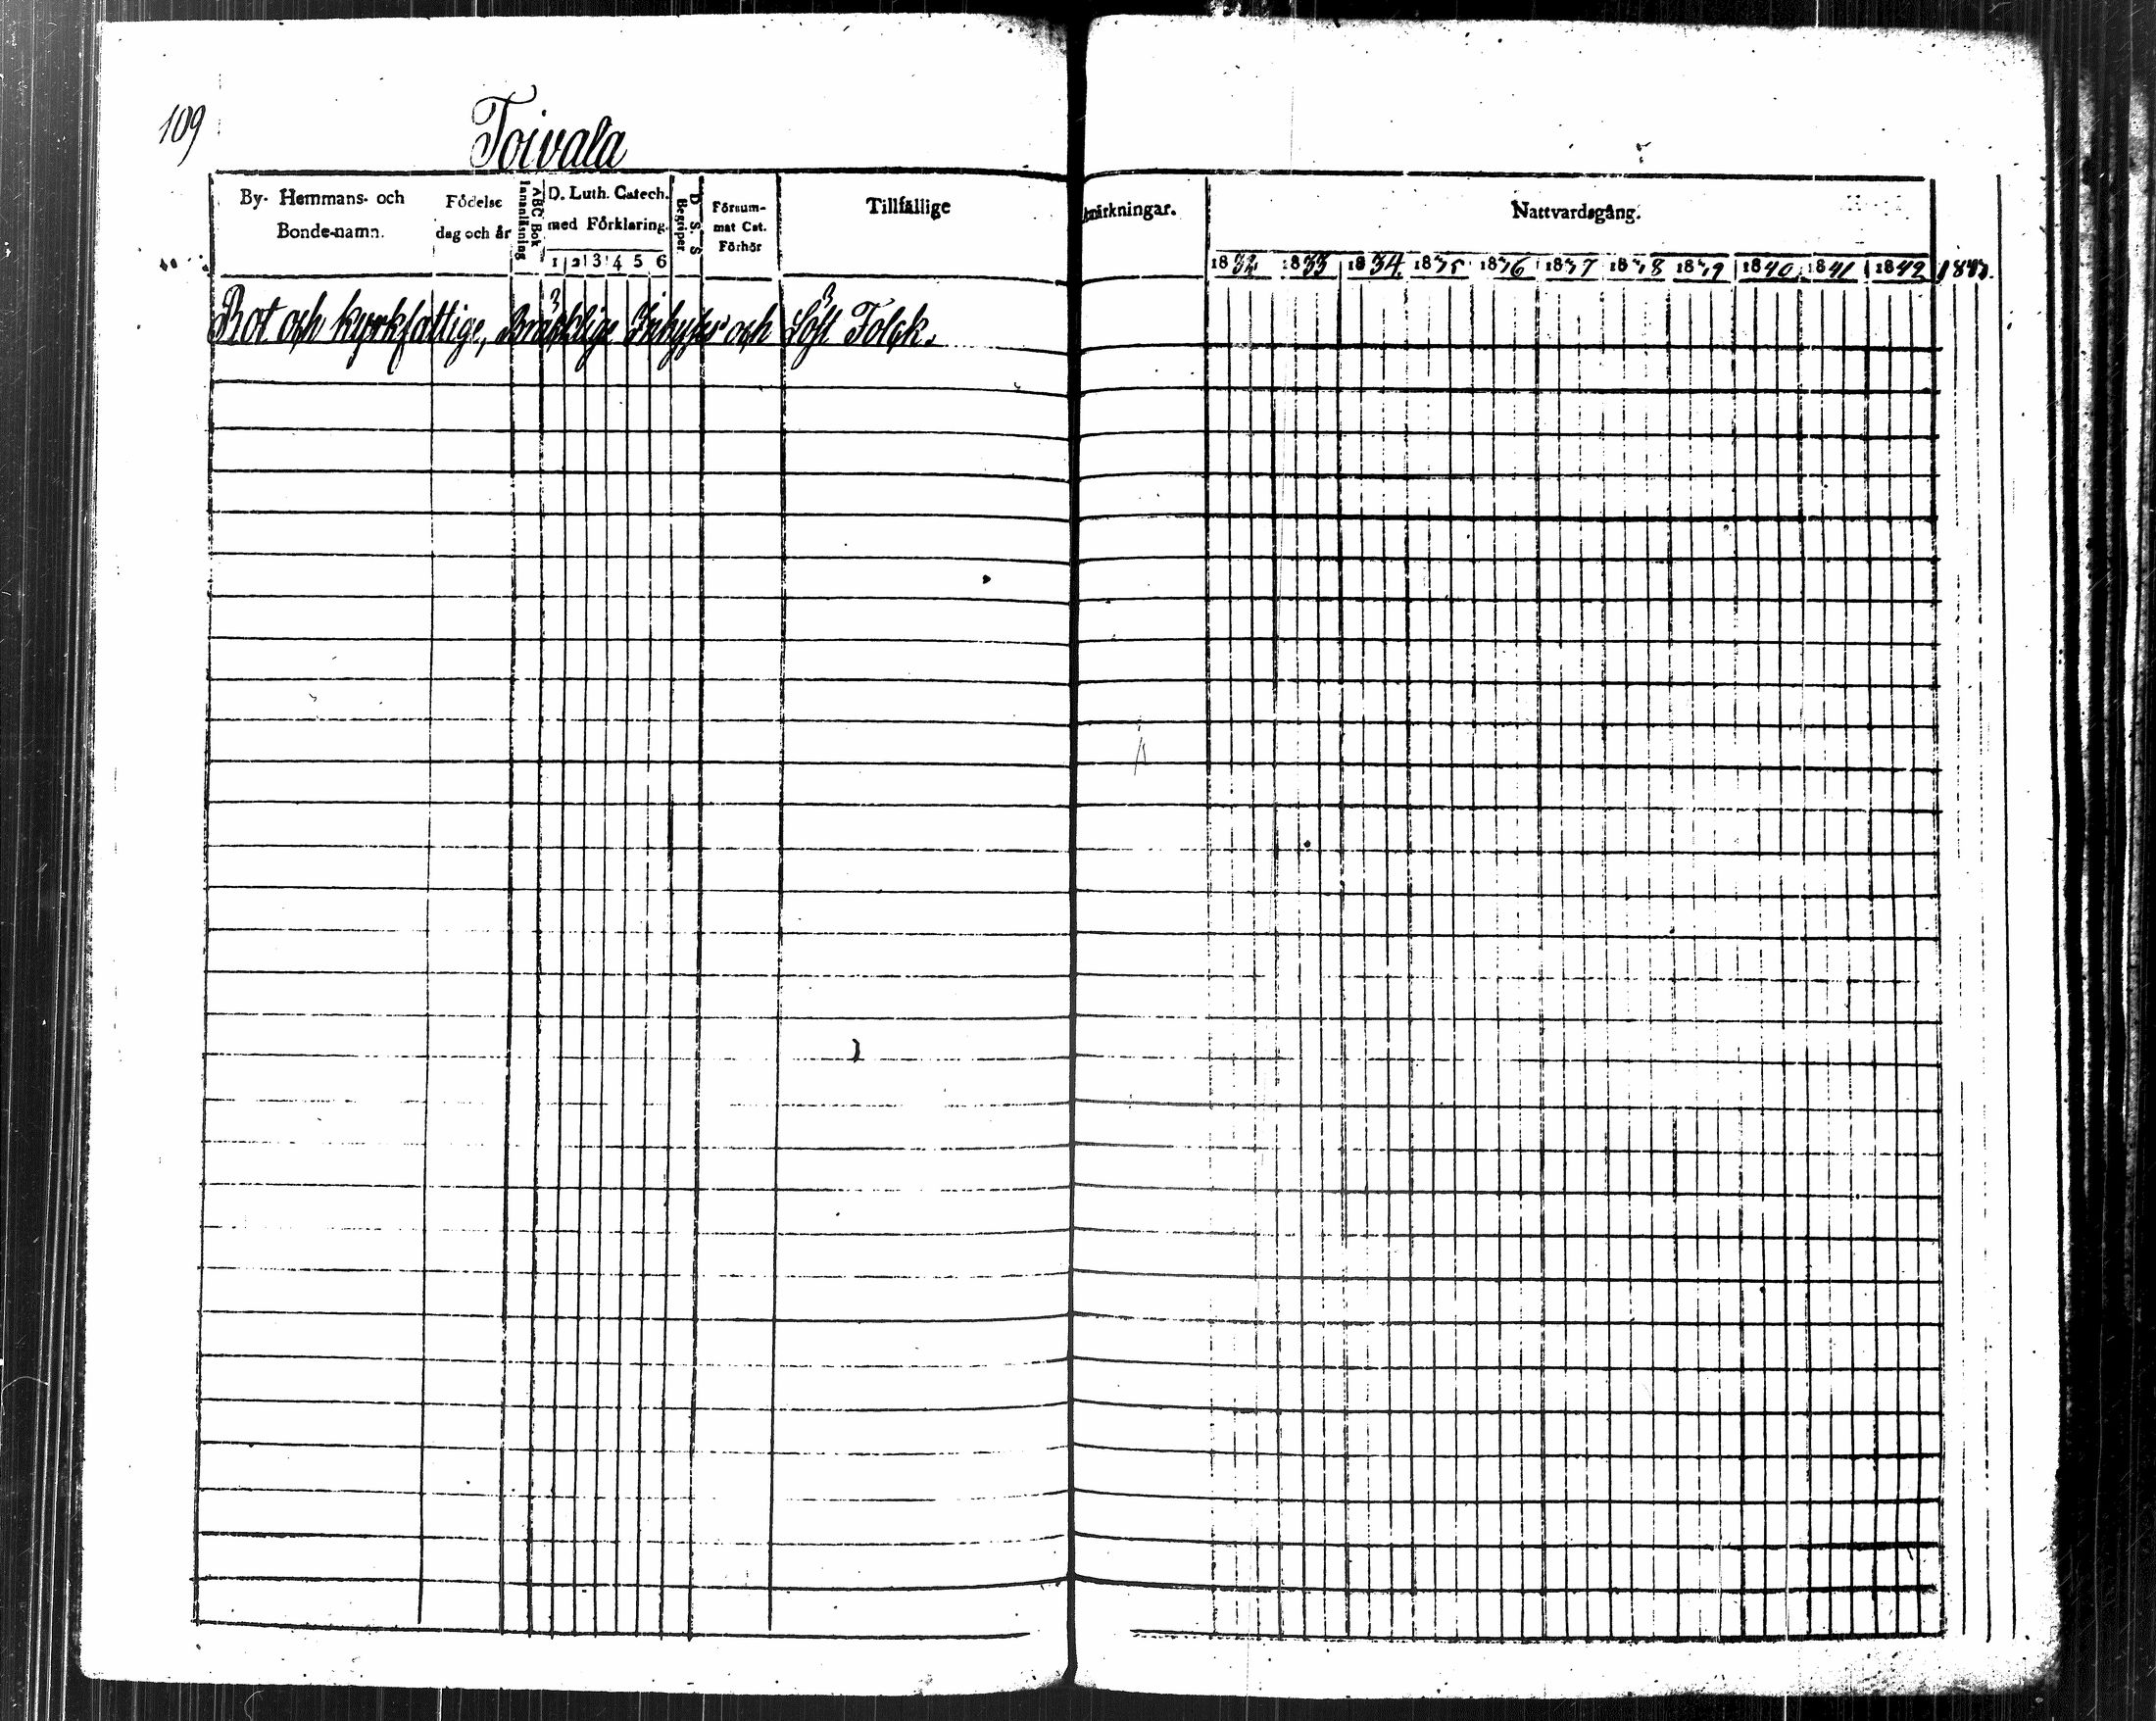 109
Toivala
By- Hemmans- och
Bonde-namn.
Födelse
dag och år
Innanläsning
ABC Bok
D. Luth. Catech.
med Förklaring.
1 2 3 4 5 6
D. S. S
Begriper
Försum-
mat Cat.
Förhör
Tillfällige
märkningar.
Nattvardsgång.
1832 1833 1834 1835 1836 1837 1838 1839 1840 1841 1842 1843.
Rot och kyrkfattige, Bräcklige Inhyses och Löst Folck.